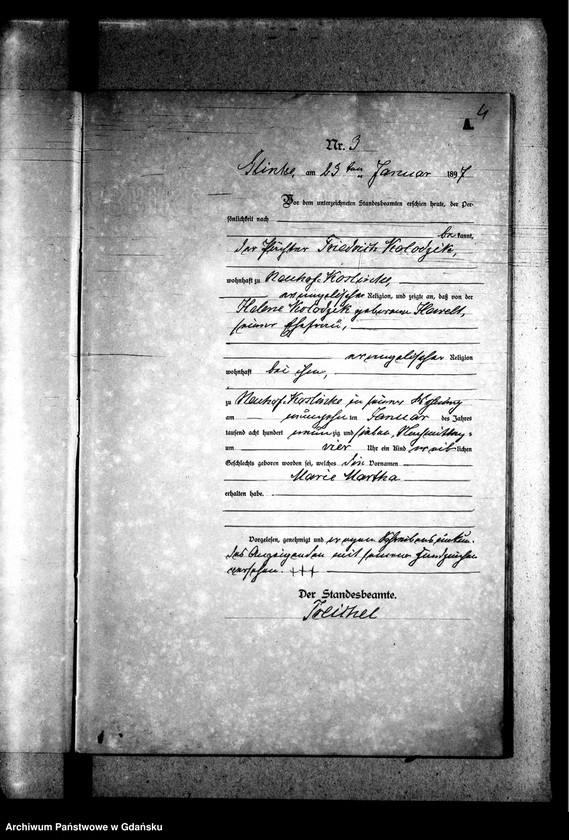 4
A.
Nr. 3
Glinke, am 23ten Januar 1897
Vor dem unterzeichneten Standesbeamten erschien heute, der Per-
sönlichkeit nach
bekannt,
der Pächter Friedrich Kolodzik,
wohnhaft zu Neuhof-Koslinke,
evangelischer Religion, und zeigte an, daß von der
Helene Kolodzik geborene
seiner Ehefrau,
evangelischer Religion
wohnhaft bei ihm,
zu Neuhof-Koslinke in seiner Wohnung
am neunzehnten Januar des Jahres
tausend acht hundert neunzig und sieben, Nachmittags
um vier Uhr ein Kind weiblichen
Geschlechts geboren worden sei, welches die Vornamen
Marie Martha
erhalten habe.
Vorgelesen, genehmigt und wegen Schreibensunkun-
des Anzeigenden mit seinem Handzeichen
versehen. +++
Der Standesbeamte.
Archiwum Państwowe w Gdańsku